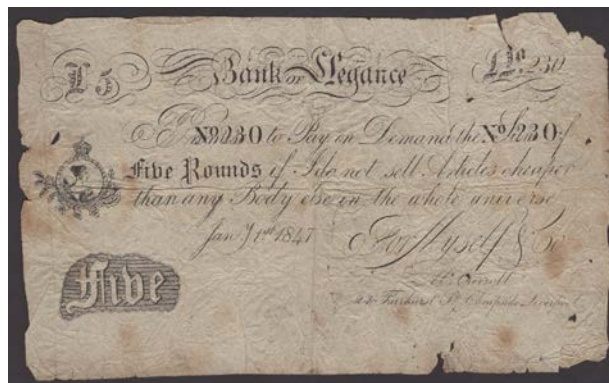 £5 Bank OF Elegance No. 230
I Promise No 230 to Pay on Demand the Sum of No 230
Five Rounds if I do not sell Articles cheaper
than any Body else in the whole universe
Jany 1st 1847 For Myself & Co
Five